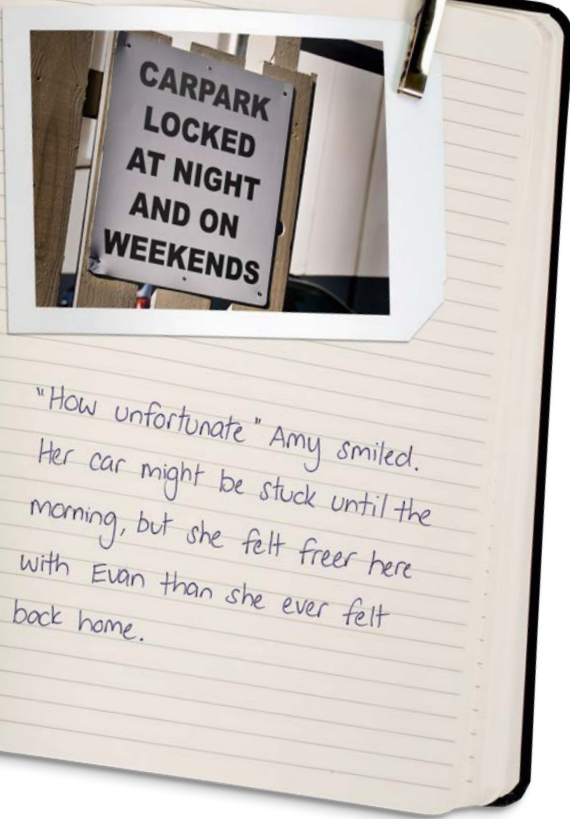 CARPARK
LOCKED
AT NIGHT
AND ON
WEEKENDS
"How unfortunate" Amy smiled.
Her car might be stuck until the
morning, but she felt freer here
with Evan than she ever felt
back home.